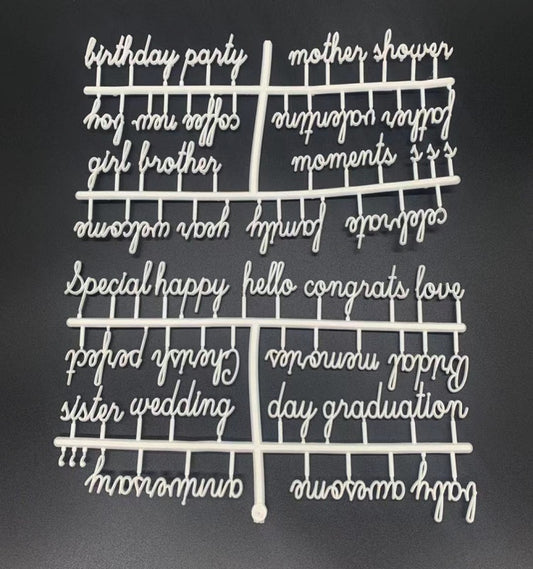 birthday party mother shower
coffee new boy father valentine
girl brother moments s s s
year welcome family celebrate
Special happy hello congrats love
Cherish perfect Bridal memories
sister wedding day graduation
s s s
anniversary baby awesome